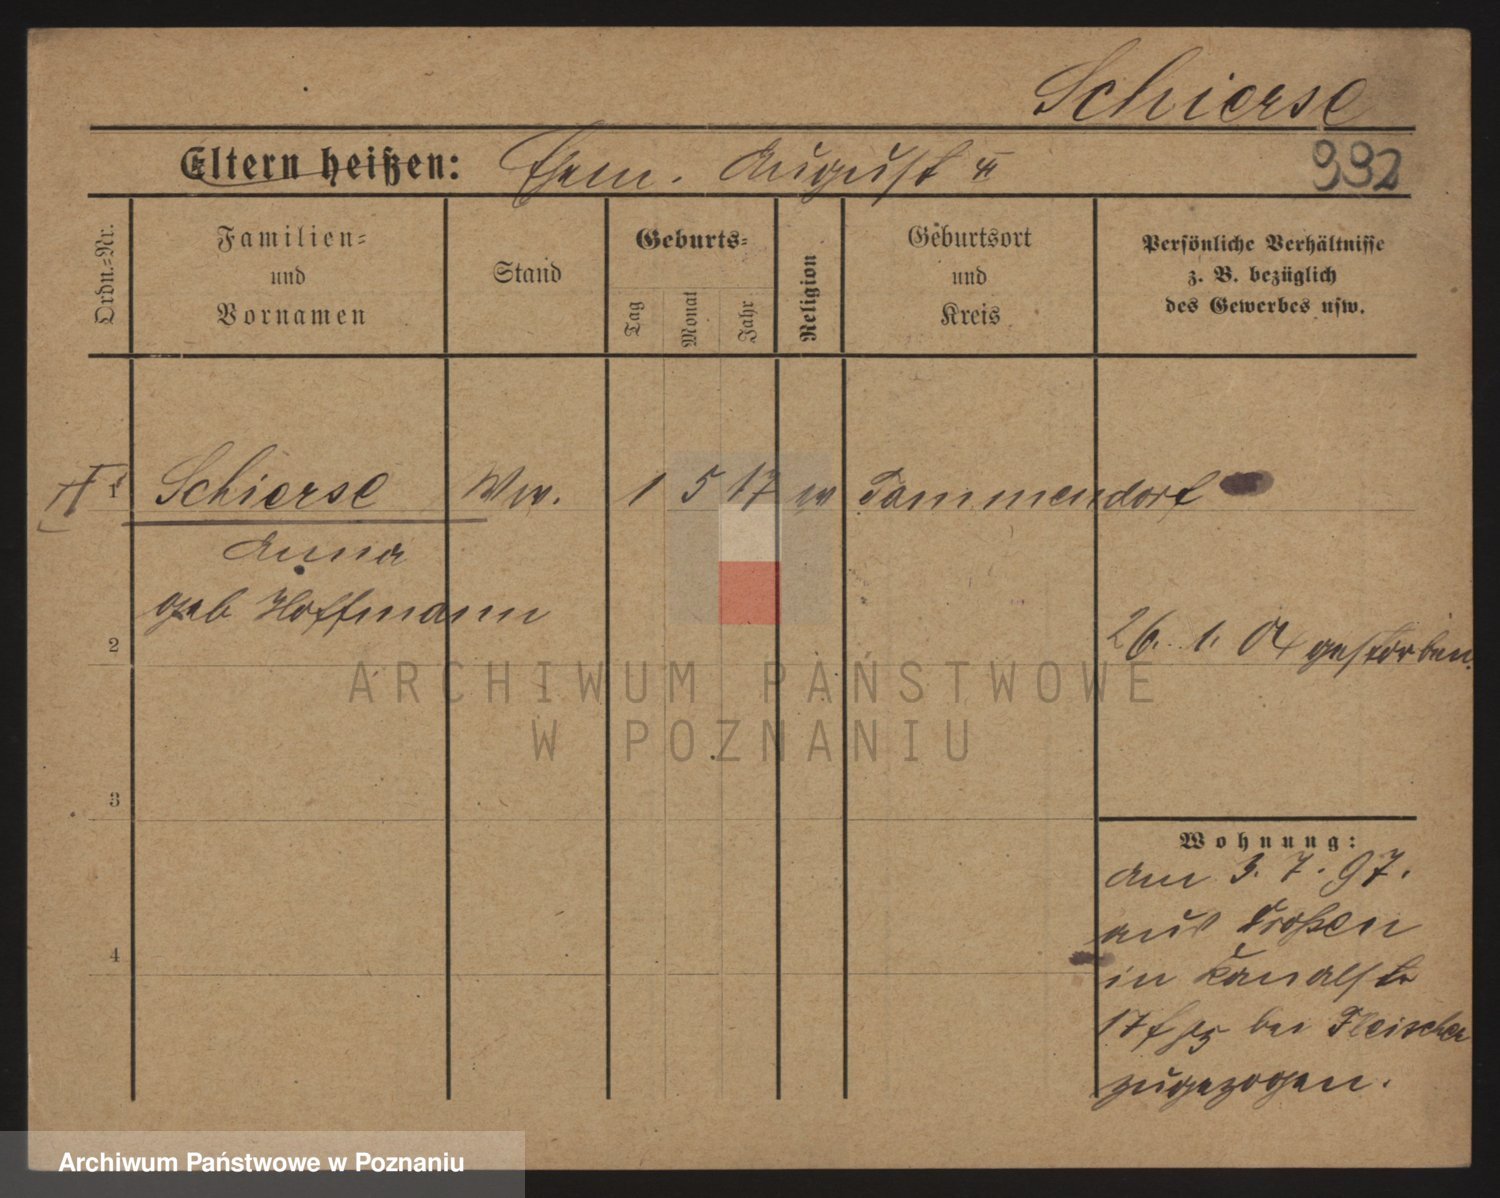 Schierse
Eltern heißen: Ehem. August
992
Ordn.=Nr.
Familien=
und
Vornamen
Stand
Geburts=
Tag
Monat
Jahr
Religion
Geburtsort
und
Kreis
Persönliche Verhältnisse
z. B. bezüglich
des Gewerbes usw.
1 Schierse Ww. 1 5 17 ev Tammendorf
Anna
geb Hoffmann
2
26. 1. 04 gestorben.
3
4
Wohnung:
am 3. 7. 97.
aus Kroßen
in Kanalstr
17 bei Fleischer
zugezogen.
ARCHIWUM PAŃSTWOWE
W POZNANIU
Archiwum Państwowe w Poznaniu